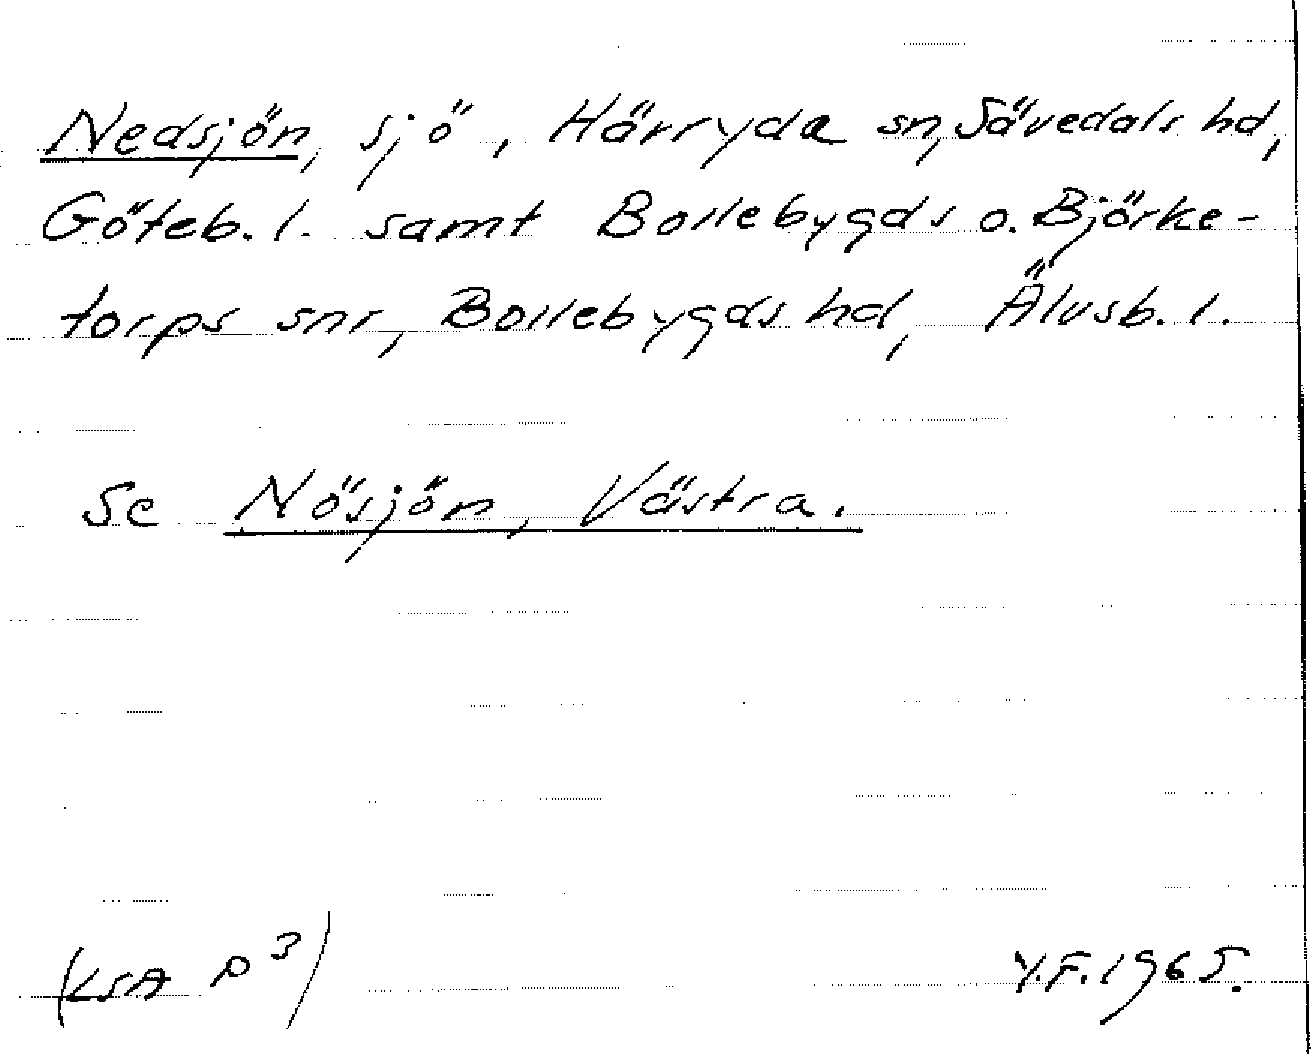 Nedsjön, sjö, Härryda sn, Sävedals hd,
Göteb. l. samt Bollebygds o. Björke-
torps snr, Bollebygds hd, Älvsb. l.
Se Nösjön, Västra.
(LSA P 3)
Y.F. 1965.